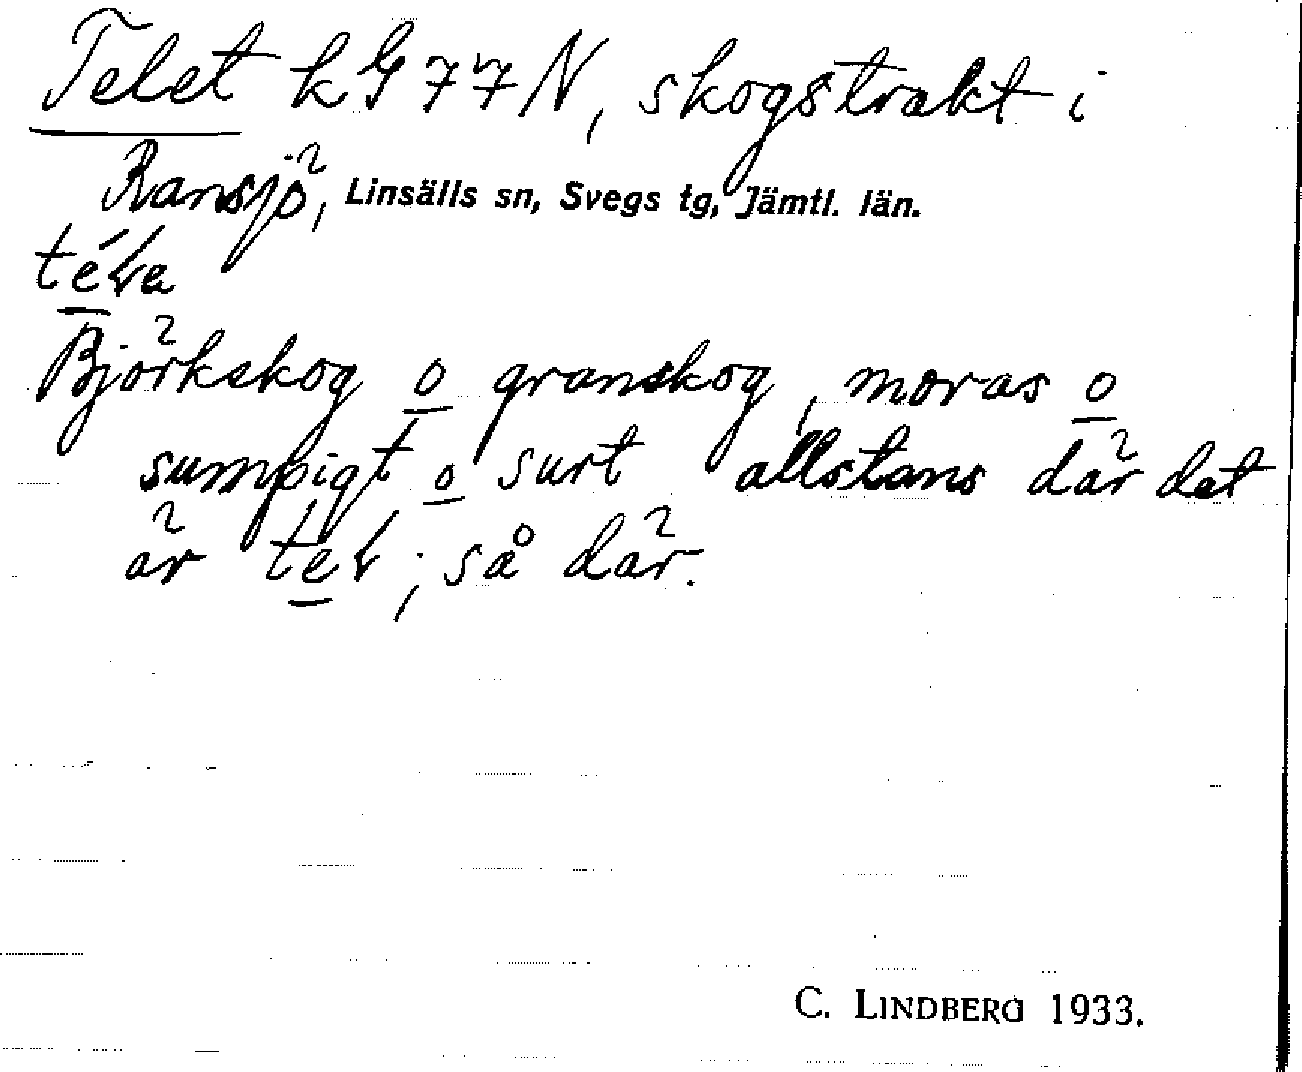 Telet k G 77 N, skogstrakt i
Ransjö, Linsälls sn, Svegs tg, Jämtl. län.
Björkskog o granskog, moras o
sumpigt o surt allstans där det
är ; så där.
C. LINDBERG 1933.